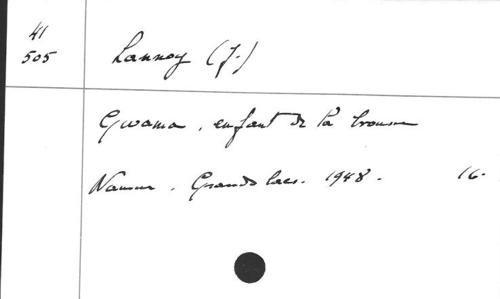 41
505
Lannoy (J.)
Gwama, enfant de la brousse
Namur. Grands lacs. 1948. 16.